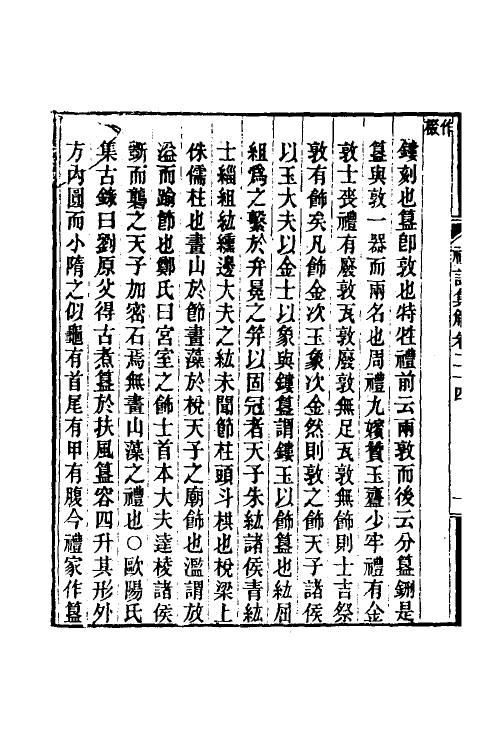 作廏
鏤刻也簋卽敦也特牲禮前云兩敦而後云分簋鉶是
簋與敦一器而兩名也周禮九嬪贊玉齍少牢禮有金
敦士喪禮有廢敦瓦敦廢敦無足瓦敦無飾則士吉祭
敦有飾矣凡飾金次玉象次金然則敦之飾天子諸侯
以玉大夫以金士以象與鏤簋謂鏤玉以飾簋也紘屈
組爲之繫於弁冕之笄以固冠者天子朱紘諸侯青紘
士緇組紘纁邊大夫之紘未聞節柱頭斗栱也梲梁上
侏儒柱也畫山於節畫藻於梲天子之廟飾也濫謂放
溢而踰節也鄭氏曰宮室之飾士首本大夫達棱諸侯
斲而礱之天子加密石焉無畫山藻之禮也○歐陽氏
集古錄曰劉原父得古煮簋於扶風簋容四升其形外
方內圓而小隋之似龜有首尾有甲有腹今禮家作簋
禮記集解卷二十四
一